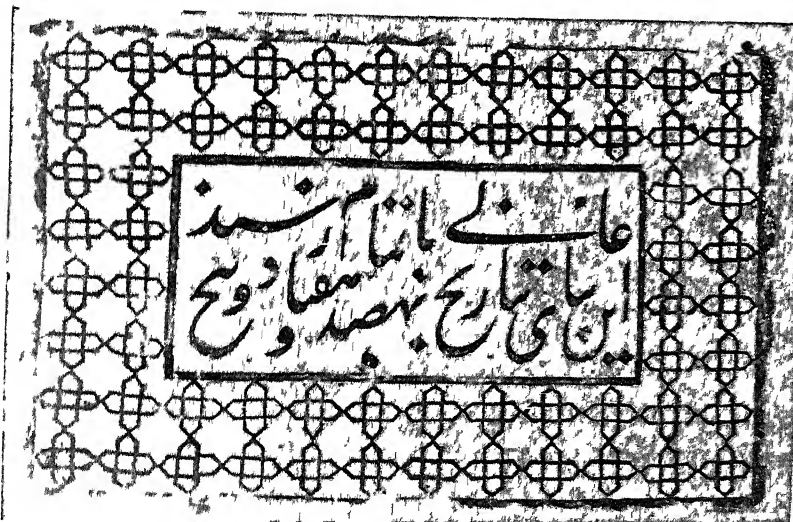 عالی باتمام رسید
این بنای بتاریخ نهصد و هفتاد و پنج